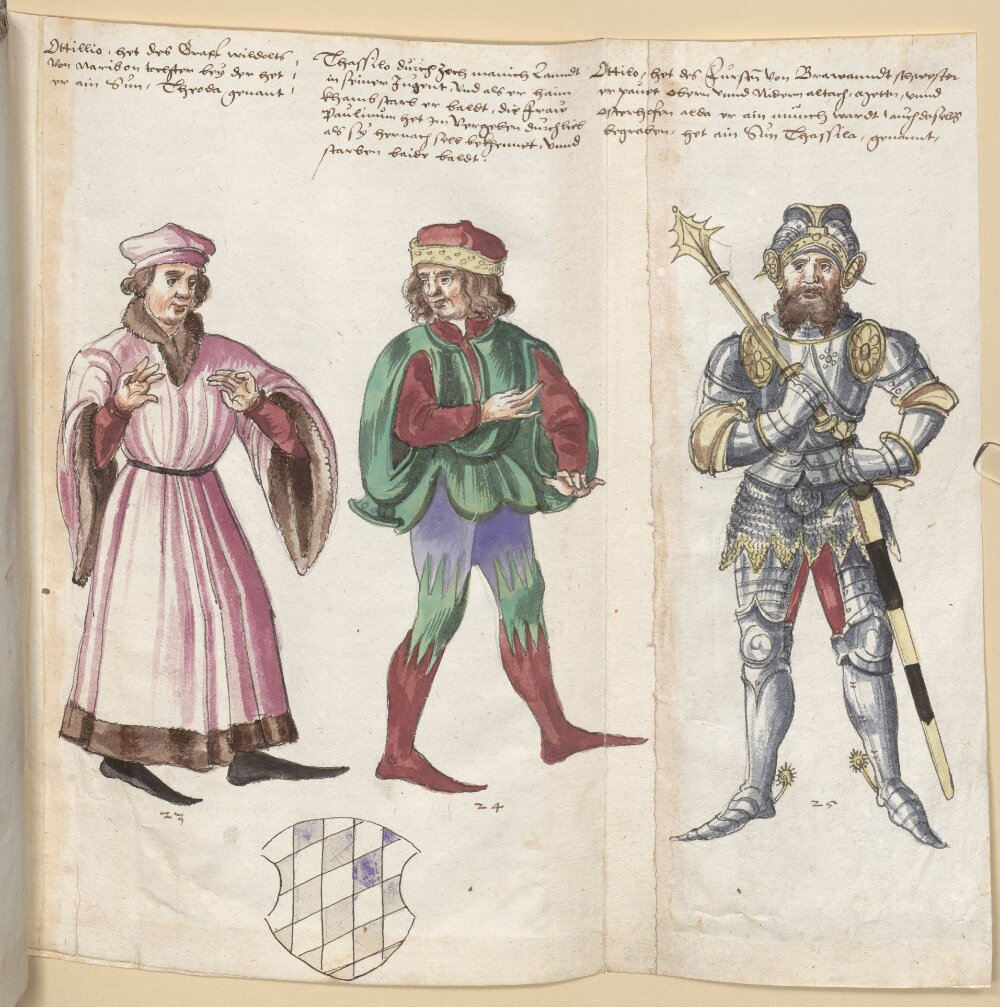 Ottillio, het des Graff wildolts
von Naribon tochter bey der het
er ain Sun, Theoda genant
Thassilo durch zoch manich Lanndt
in seiner Jugent, Vnd als er haim
kham starb er baldt, die frau
Paulinum het Im Vergeben durch lieb
als sy hernach selb bekhennet, Vnnd
starben baide baldt.
Ottilo, het des Fursten von Brawanndt schwester
er paut obern vnnd Nidern altach, vnnd
osterhofen alda er ain münch wardt auch daselbs
begraben, het ain Sun Thassila, genannt,
23
24
25